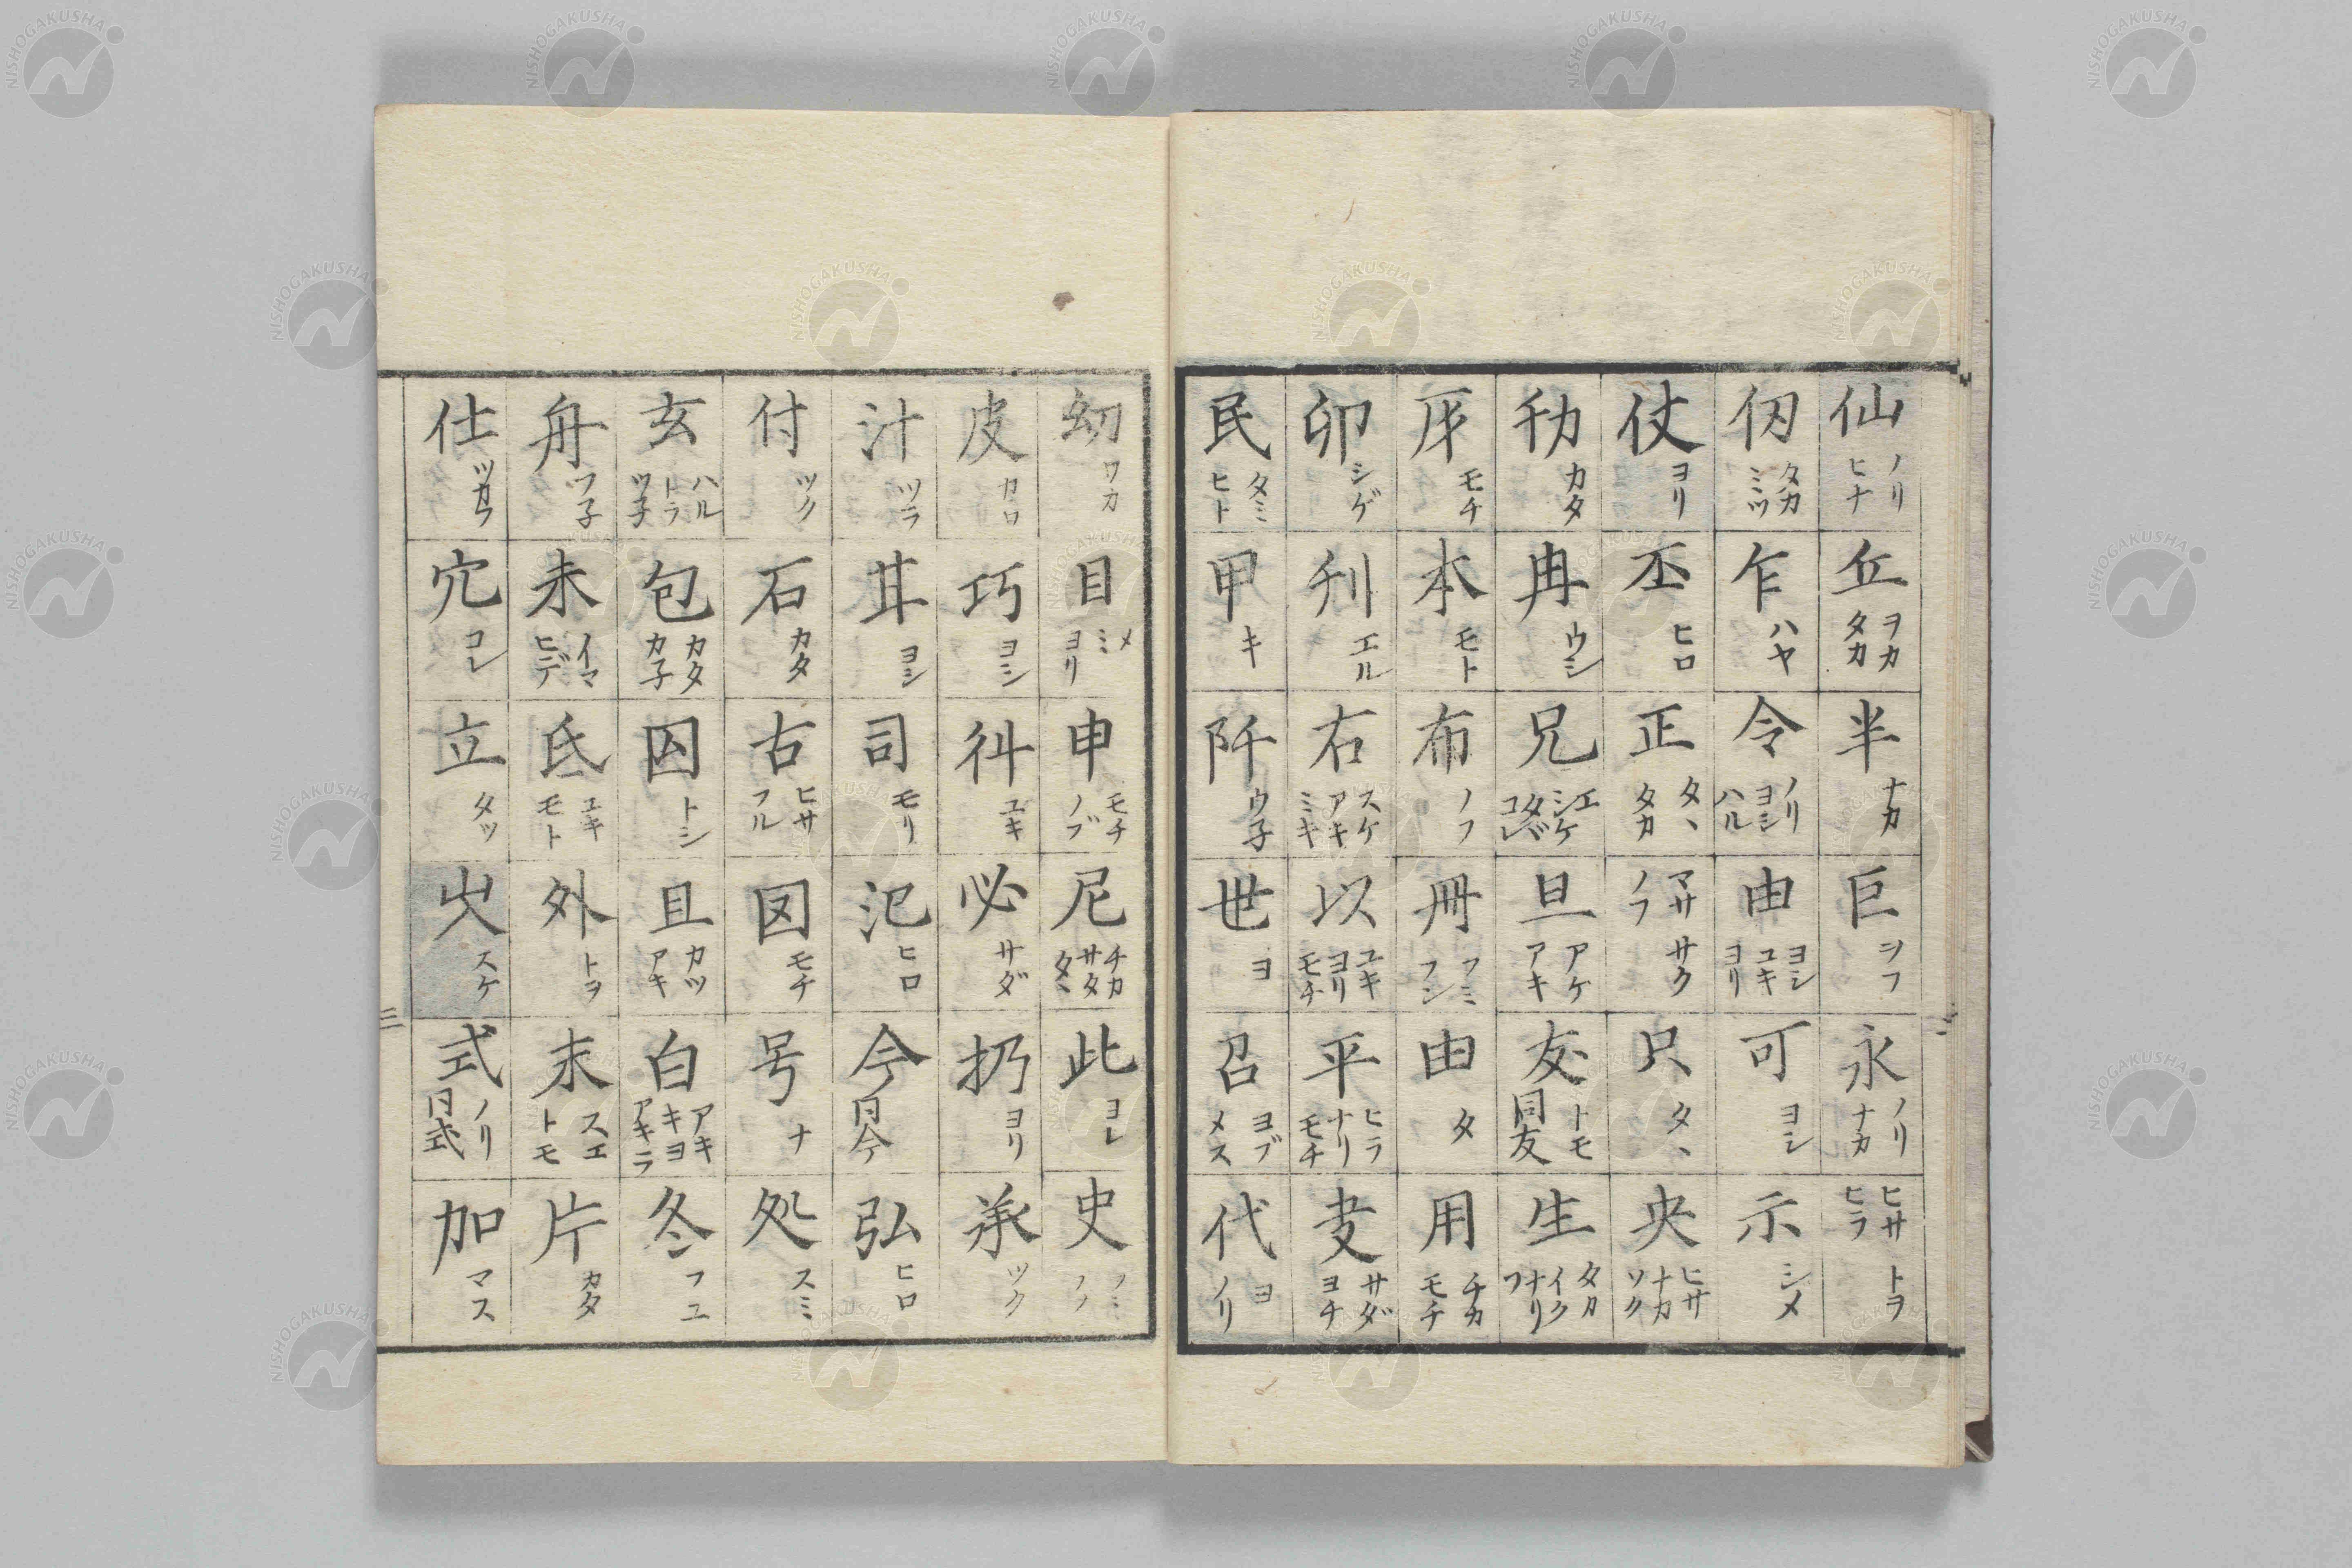 仙 ノリ ヒナ
丘 ヲカ タカ
半 ナカ
巨 ヲフ
永 ノリ ナカ
ヒサ ヒラ トヲ
仭 タカ ミツ
乍 ハヤ
令 ノリ ヨシ ハル
由 ヨシ ユキ ヨリ
可 ヨシ
示 シメ
仗 ヨリ
丕 ヒロ
正 タヽ タカ
マサ ノフ サク
只 タヽ
央 ヒサ ナカ ソク
カタ
冉 ウシ
兄 エ シケ タダ コレ
旦 アケ アキ
友 トモ 同友
生 タカ イク ナリ フ
牙 モチ
本 モト
布 ノフ
冊 フミ フン
由 タ
用 チカ モチ
卯 シゲ
刋 エル
右 スケ アキ ミキ
以 ユキ ヨリ モチ
平 ヒラ ナリ モチ
サダ ヨチ
民 タミ ヒト
甲 キ
阡 ウ子
世 ヨ
召 ヨブ メス
代 ヨ ノリ
幼 ワカ
目 メ ミ ヨリ
申 モチ ノブ
尼 チカ サタ タヽ
此 ヨレ
史 フミ ノフ
皮 カロ
巧 ヨシ
ユキ
必 サダ
扔 ヨリ
承 ツク
汁 ツラ
ヨシ
司 モリ
氾 ヒロ
今 同今
弘 ヒロ
付 ツク
石 カタ
古 ヒサ フル
モチ
号 ナ
処 スミ
玄 ハル トラ ツ子
包 カタ カ子
囚 トシ
且 カツ アキ
白 アキ キヨ アキラ
冬 フユ
舟 フ子
未 イマ ヒデ
氐 ユキ モト
外 トヲ
末 スエ トモ
片 カタ
仕 ツカフ
穴 コレ
立 タツ
スケ
式 ノリ 同式
加 マス
三
NISHOGAKUSHA